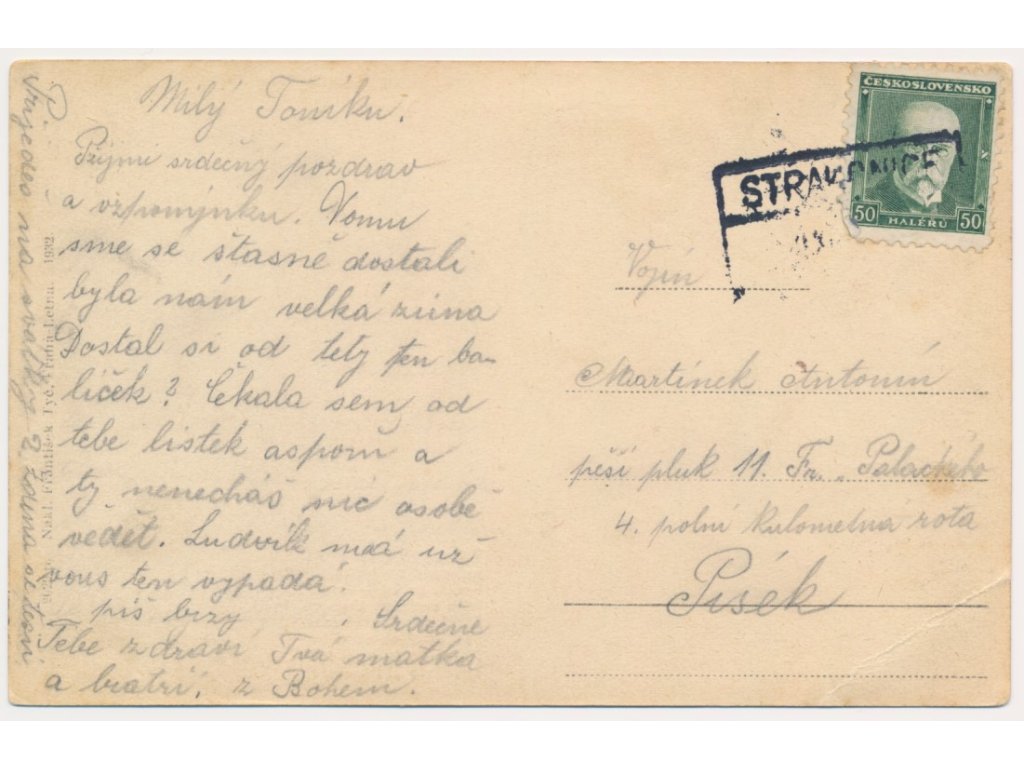 Milý Toníku.
Přijmi srdečný pozdrav
a vzpomýnku. Vomu
sme se štasně dostali
byla nám velká zima
Dostal si od tety ten ba-
líček? Čekala sem od
tebe lístek aspom a
ty nenecháš nic osobě
vědět. Ludvík má už
vous ten vypadá.
piš brzy, Srdečně
Tebe zdraví Tvá matka
a bratři. z Bohem.
Přijedeš na svátky
Nakl. František Tyč, Praha-Letná 1932.
ČESKOSLOVENSKO
50 HALÉŘŮ 50
STRAKONICE
Vojín
Martínek Antonín
pěší pluk 11. Fr. Palackého
4. polní kulometna rota
Písek